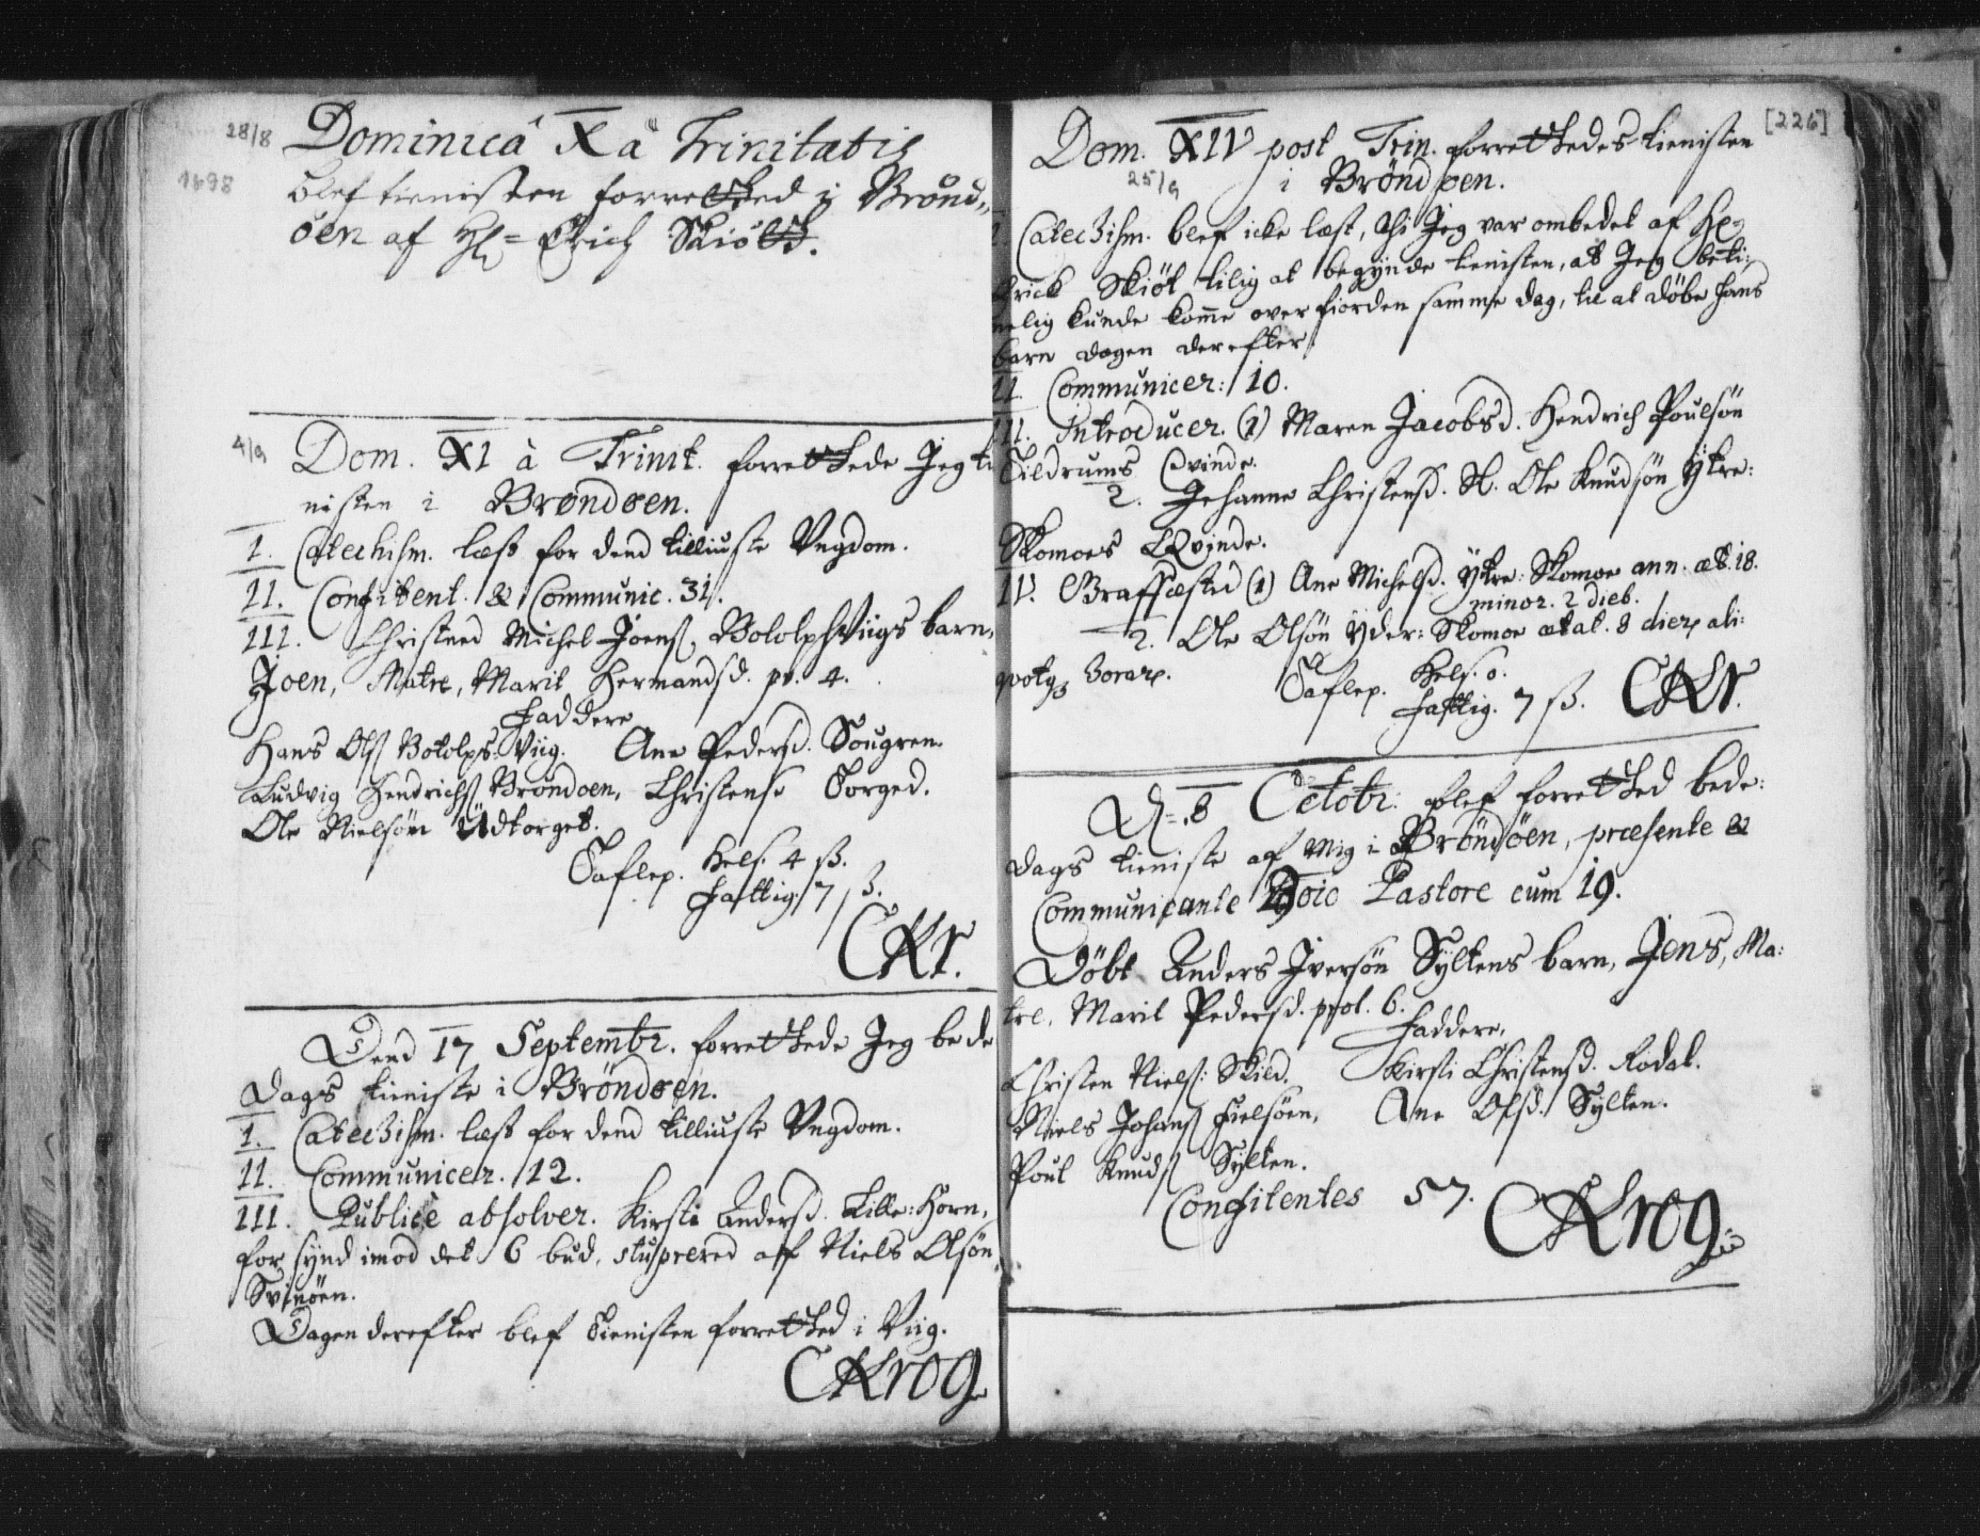 28/8
1698
Dominica X a Trinitatis
blef tienisten forretted i Brønd„
öen af Hr= Erich Skiöltt.
4/9
Dom. XI à Trinit. forrettede Jeg ti
nisten i Brøndøen.
I. Catechism. læst for dend tilliuste Vngdom.
II. Confitent. & Communic. 31.
III. Christned Michel Joens. Bololphs Viigs barn,
Joen, Matre, Marit Hermandsd. pr. 4.
Faddere
Hans Ols Botolps: Viig. Ane Pedersd. Sougren.
Ludvig Hendrichs Brøndøen, Christense Torged.
Ole Nielsøn Üdtorget.
Taflep. Hels. 4 ß.
Fattig. 7 ß.
CKr.
Dend 17 Septembr. forrettede Jeg bede
dags tieniste i Brøndøen.
I. Catechism. læst for dend tilliuste Vngdom.
II. Communicer. 12.
III. Publicè absolver. Kirsti Andersd. Lille: Horn,
for synd imod det 6 bud, stuprered af Niels Olsøn,
Svinöen.
Dagen derefter blef Tienisten forretted i Viig.
CKrog
[226]
Dom. XIV post Trin. forrettedes tienisten
25/9 i Bröndøen.
I Catechism. blef icke læst, thi Jeg var ombedet af Hr.
Erick Skiöt tilig at begynde tienisten, at Jeg beti:
melig kunde komme over fiorden samme dag, til at döbe hans
barn dagen derefter
II. Communicer: 10.
III. Introducer. (1) Maren Jacobsd. Hendrich Poulsøn
Tildrums Qvinde.
2. Johanne Christensd. Sl. Ole Knudsøn Ytre:
Skomoes Qvinde.
IV. Graffæsted (1) Ane Michelsd. Ytre: Skomoe ann. æt. 18.
minor. 2 dieb.
2. Ole Olsøn Yder: Skomoe ætat. 8 dier. ali:
qvotq horar.
Taflep. Hels. 0.
Fattig. 7 ß. CKr.
D= 8 Octobr. blef forretted bede:
dags tieniste af Mig i Bröndöen, præsente &
Communicante Dnio Pastore cum 19.
Döbt Anders Jversøn Syltens barn, Jens, Ma:
tre, Marit Pedersd. prol. 6.
Faddere,
Christen Niels: Skild. Kirsti Christensd. Rodal.
Niels Johans Fielsöen, Ane Olsd. Sylten.
Poul Knuds Sylten.
Confitentes 57.
CKrog